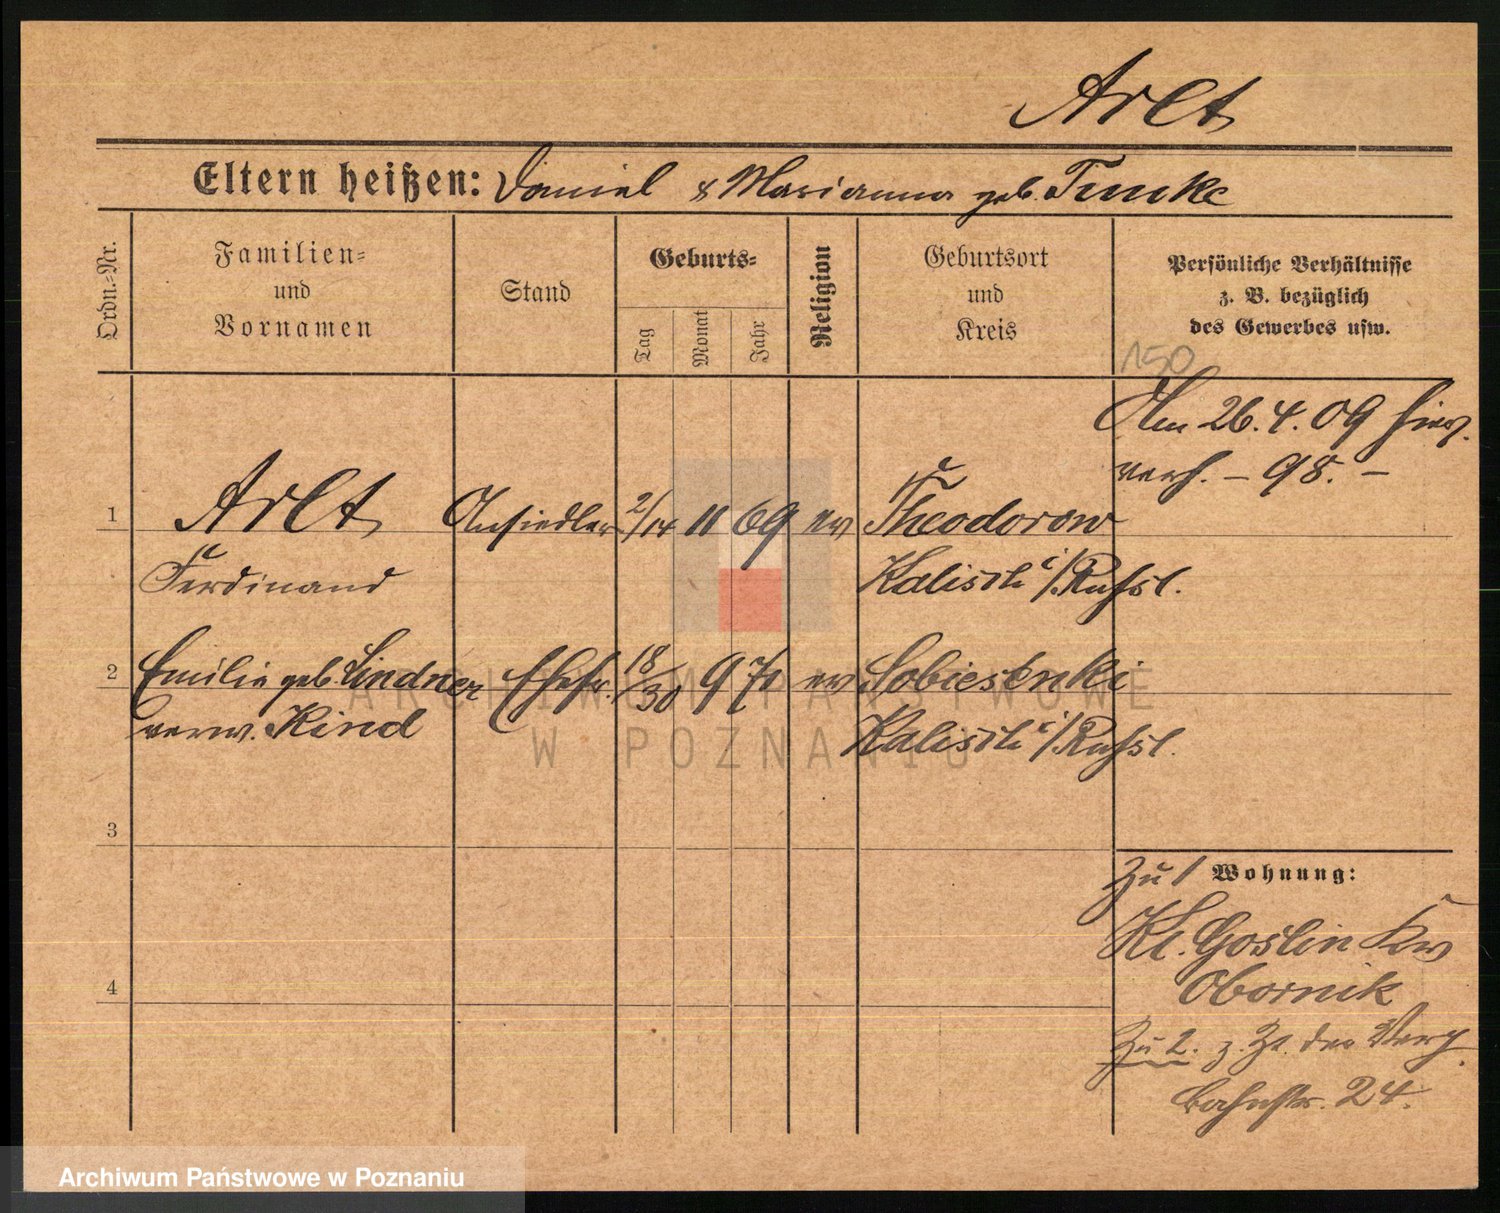 Arlt
Eltern heißen: Daniel & Marianna geb. Funke
Ordn.-Nr.
Familien-
und
Vornamen
Stand
Geburts-
Tag
Monat
Jahr
Religion
Geburtsort
und
Kreis
Persönliche Verhältnisse
z. B. bezüglich
des Gewerbes usw.
150
Am 26.4.09 hier
verh. – 98. –
1 Arlt Ansiedler 2/14 11 69 ev Theodorow
Ferdinand Kalisch i/Rußl.
2 Emilie geb. Lindner Ehefr. 18/30 9 70 ev Sobiesenki
verw. Kind Kalisch i/Rußl.
3
4
Zu 1 Wohnung:
Kl. Goslin Kr
Obornik
Zu 2. z. Zt. der
Bahnstr. 24.
ARCHIWUM PAŃSTWOWE
W POZNANIU
Archiwum Państwowe w Poznaniu